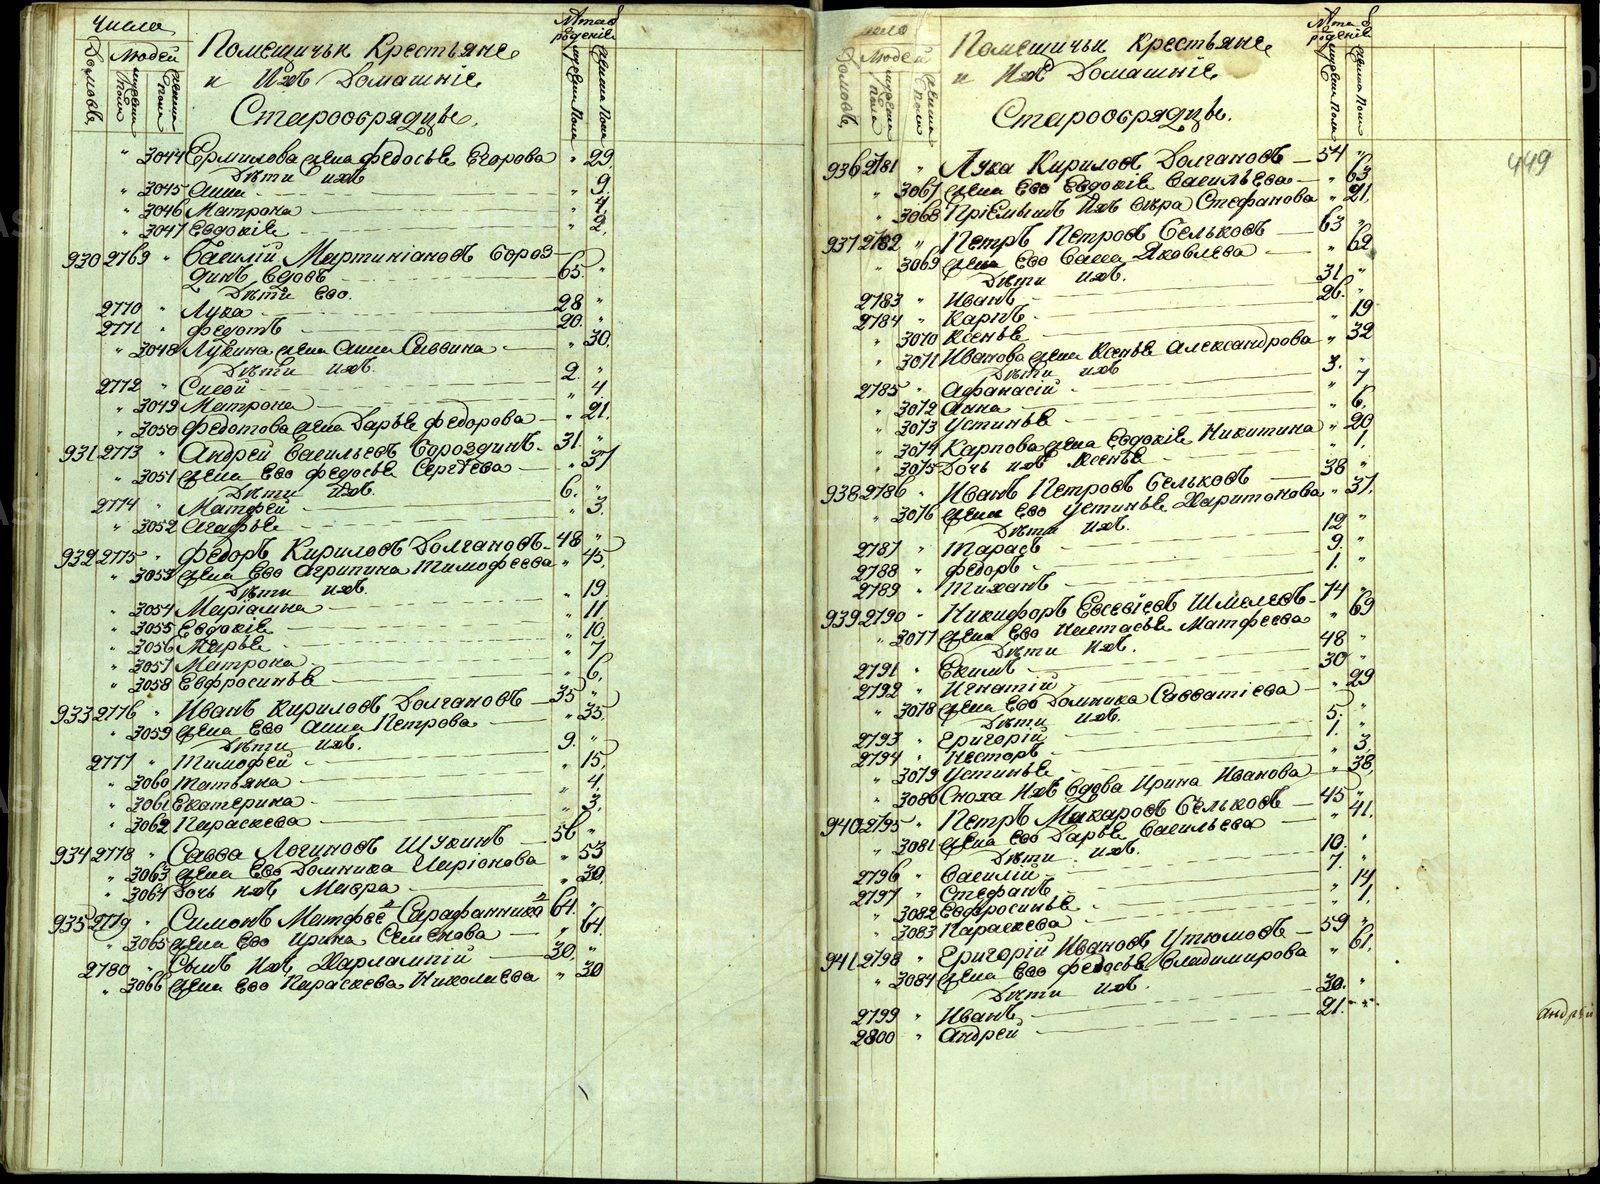 Числа
Домовъ
Людей
мужеска пола
женска пола
Помещичьи Крестьяне
и Ихъ Домашніе
Старообрядцы.
Лѣта
рожденіе
мужеска пола
женска пола
" 3044 Ермилова жена Федосья Егорова " 29
Дѣти ихъ
" 3045 Анна " 9.
" 3046 Матрона " 4
" 3047 Евдокія " 2.
930 2769 " Василій Мартиніановъ Бороз-
динъ вдовъ 65. "
Дѣти Его.
2770 " Лука 28 "
2771 " Федотъ 20. "
" 3048 Лукина жена Анна Саввина " 30.
Дѣти ихъ.
2772 " Сысой 2. "
" 3049 Матрона " 4
" 3050 Федотова жена Дарья Федорова " 21.
931 2773 " Андрей Васильевъ Бороздинъ 31 "
" 3051 жена Его Федосья Сергѣева " 37
Дѣти Ихъ.
2774 " Матфей 6. "
" 3052 Агафья " 3.
932 2775 " Федоръ Кириловъ Долгановъ 48 "
" 3053 жена Его Агрипина Тимофеева " 45,
Дѣти ихъ.
" 3054 Маріамна " 19.
" 3055 Евдокія " 11
" 3056 Марья " 10.
" 3057 Матрона " 7
" 3058 Евфросинья " 6,
933 2776 " Иванъ Кириловъ Долгановъ 35 "
" 3059 жена Его Анна Петрова " 35.
Дѣти ихъ.
2777 " Тимофей 9. "
" 3060 Татьяна " 15,
" 3061 Екатерина " 4.
" 3062 Параскева " 3.
934 2778 " Савва Логиновъ Щукинъ 56 "
" 3063 жена Его Домника Иларіонова " 53
" 3064 Дочь ихъ Мавра " 30.
935 2779 " Симонъ Матфее Сарафанника 61. "
" 3065 жена Его Ирина Семенова " 64.
2780 " Сынъ Ихъ Харлампій 30. "
" 3066 жена Его Параскева Николаева " 30
Число
Домовъ
Людей
мужеска пола
женска пола
Помещичьи Крестьяне
и Ихъ Домашніе
Старообрядцы.
Лѣта
рожденіе
мужеска пола
женска пола
449
936 2781 " Лука Кириловъ Долгановъ 54 "
" 3067 жена Его Евдокія Васильева " 63
" 3068 Пріемышъ Ихъ Вѣра Стефанова " 21,
937 2782 " Петръ Петровъ Бельковъ 63 "
" 3069 жена Его Васса Яковлева " 62
Дѣти ихъ.
2783 " Иванъ 31 "
2784 " Карпъ 26. "
" 3070 Ксенья " 19
" 3071 Иванова жена Ксенья Александрова " 32
Дѣти ихъ
2785 " Афанасій 3. "
" 3072 Анна " 7
" 3073 Устинья " 6.
" 3074 Карпова жена Евдокія Никитина " 20
" 3075 Дочь ихъ Ксенья " 1,
938 2786 " Иванъ Петровъ Бельковъ 38 "
" 3076 жена Его Устинья Харитонова " 37,
Дѣти ихъ.
2787 " Тарасъ 12 "
2788 " Федоръ 9. "
2789 " Тиханъ 1. "
939 2790 " Никифоръ Евсевіевъ Шмелевъ 74 "
" 3077 жена Его Настасья Матфеева " 69
Дѣти Ихъ.
2791 " Екимъ 48 "
2792 " Игнатій 30 "
" 3078 жена Его Домника Савватіева " 29
Дѣти ихъ.
2793 " Григорій 5. "
2794 " Несторъ 1. "
" 3079 Устинья " 3,
" 3080 Сноха Ихъ Вдова Ирина Иванова " 38,
940 2795 " Петръ Макаровъ Бельковъ 45 "
" 3081 жена Его Дарья Васильева " 41.
Дѣти ихъ.
2796 " Василій 10. "
2797 " Стефанъ 7. "
" 3082 Евфросинья " 14
" 3083 Параскева " 1,
941 2798 " Григорій Ивановъ Утюмовъ 59 "
" 3084 жена Его Федосья Владимирова " 61.
Дѣти ихъ.
2799 " Иванъ 30. "
2800 " Андрей 21. "
Андрей